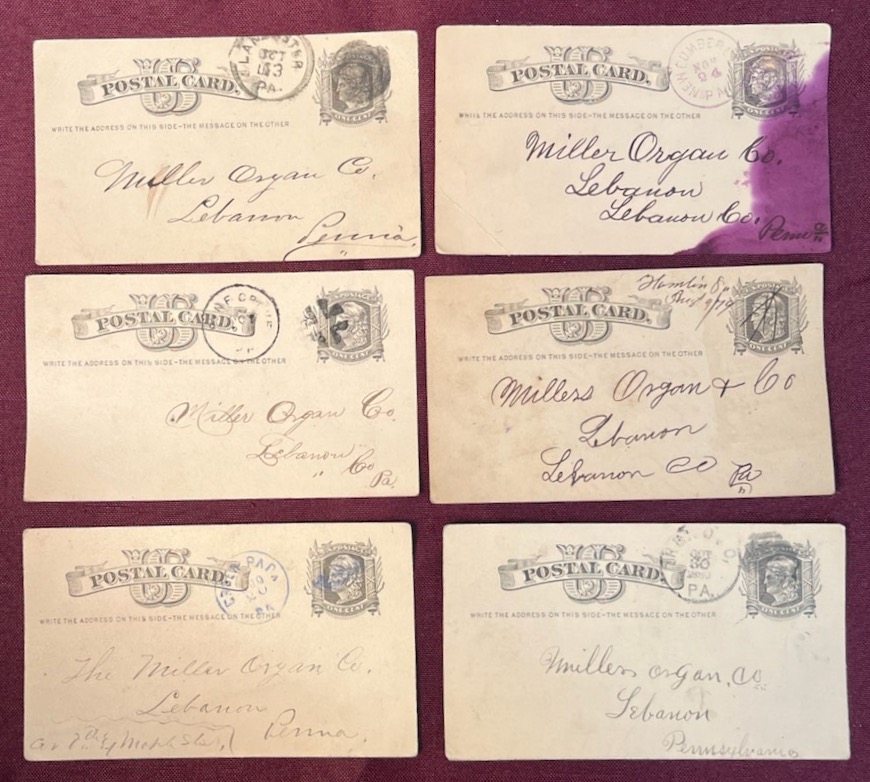 POSTAL CARD.
US
LANCASTER
OCT
13
PA.
ONE CENT
WRITE THE ADDRESS ON THIS SIDE–THE MESSAGE ON THE OTHER
Miller Organ Co.
Lebanon
Penna.
POSTAL CARD.
US
NEW CUMBERL
NOV
24
PA
ONE CENT
WRITE THE ADDRESS ON THIS SIDE–THE MESSAGE ON THE OTHER
Miller Organ Co.
Lebanon
Lebanon Co.
Penna
POSTAL CARD.
US
ONE CENT
WRITE THE ADDRESS ON THIS SIDE–THE MESSAGE ON THE OTHER
Miller Organ Co.
Lebanon
" Co
Pa.
POSTAL CARD.
US
Hamlin
ONE CENT
WRITE THE ADDRESS ON THIS SIDE–THE MESSAGE ON THE OTHER
Millers Organ & Co
Lebanon
Lebanon CO Pa
POSTAL CARD.
US
POSTAGE
ONE CENT
WRITE THE ADDRESS ON THIS SIDE–THE MESSAGE ON THE OTHER
The Miller Organ Co.
Lebanon
Penna.
POSTAL CARD.
US
OCT
30
PA.
ONE CENT
WRITE THE ADDRESS ON THIS SIDE–THE MESSAGE ON THE OTHER
Millers organ, co
Lebanon
Pennsylvania